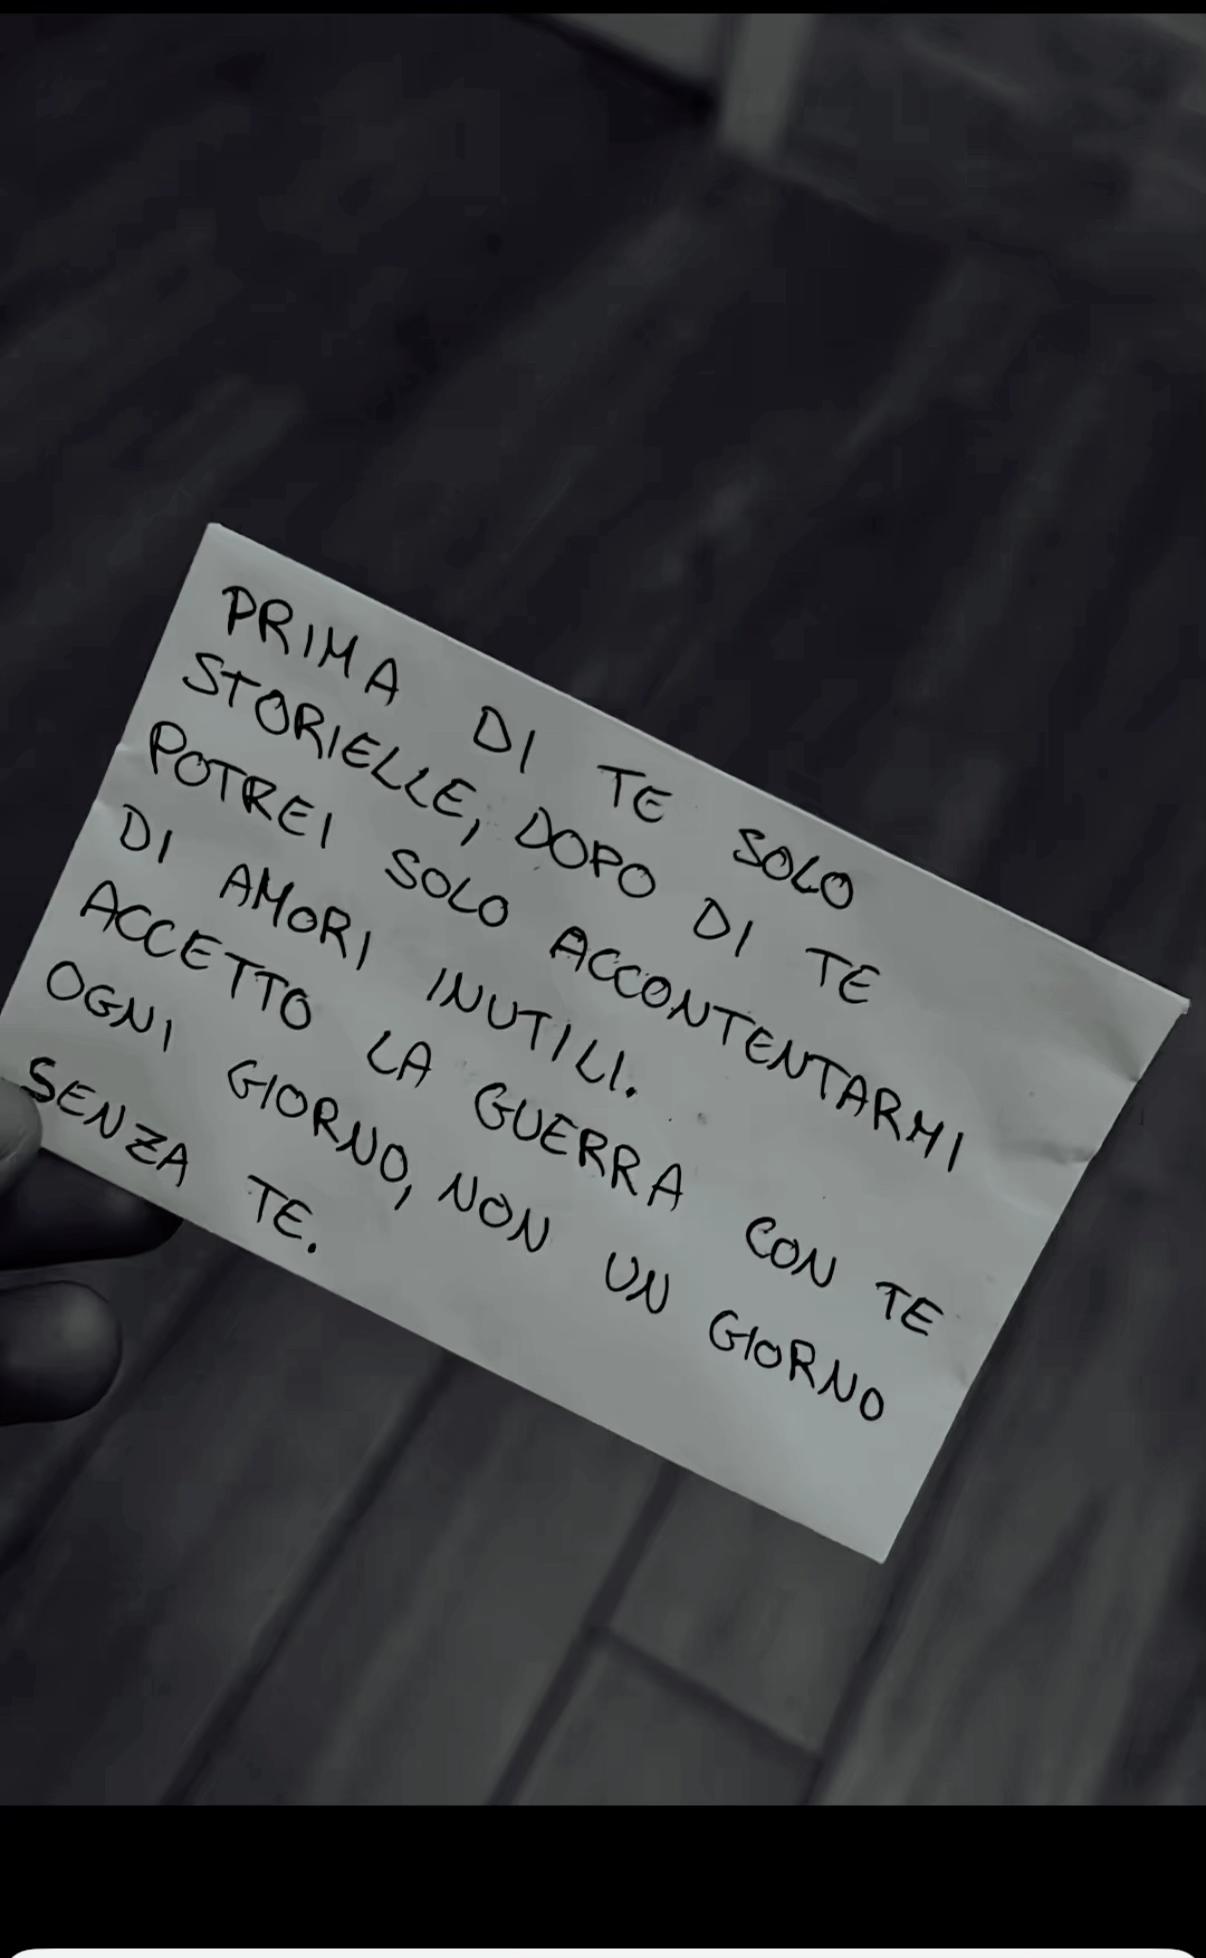 PRIMA DI TE SOLO
STORIELLE, DOPO DI TE
POTREI SOLO ACCONTENTARMI
DI AMORI INUTILI.
ACCETTO LA GUERRA CON TE
OGNI GIORNO, NON UN GIORNO
SENZA TE.